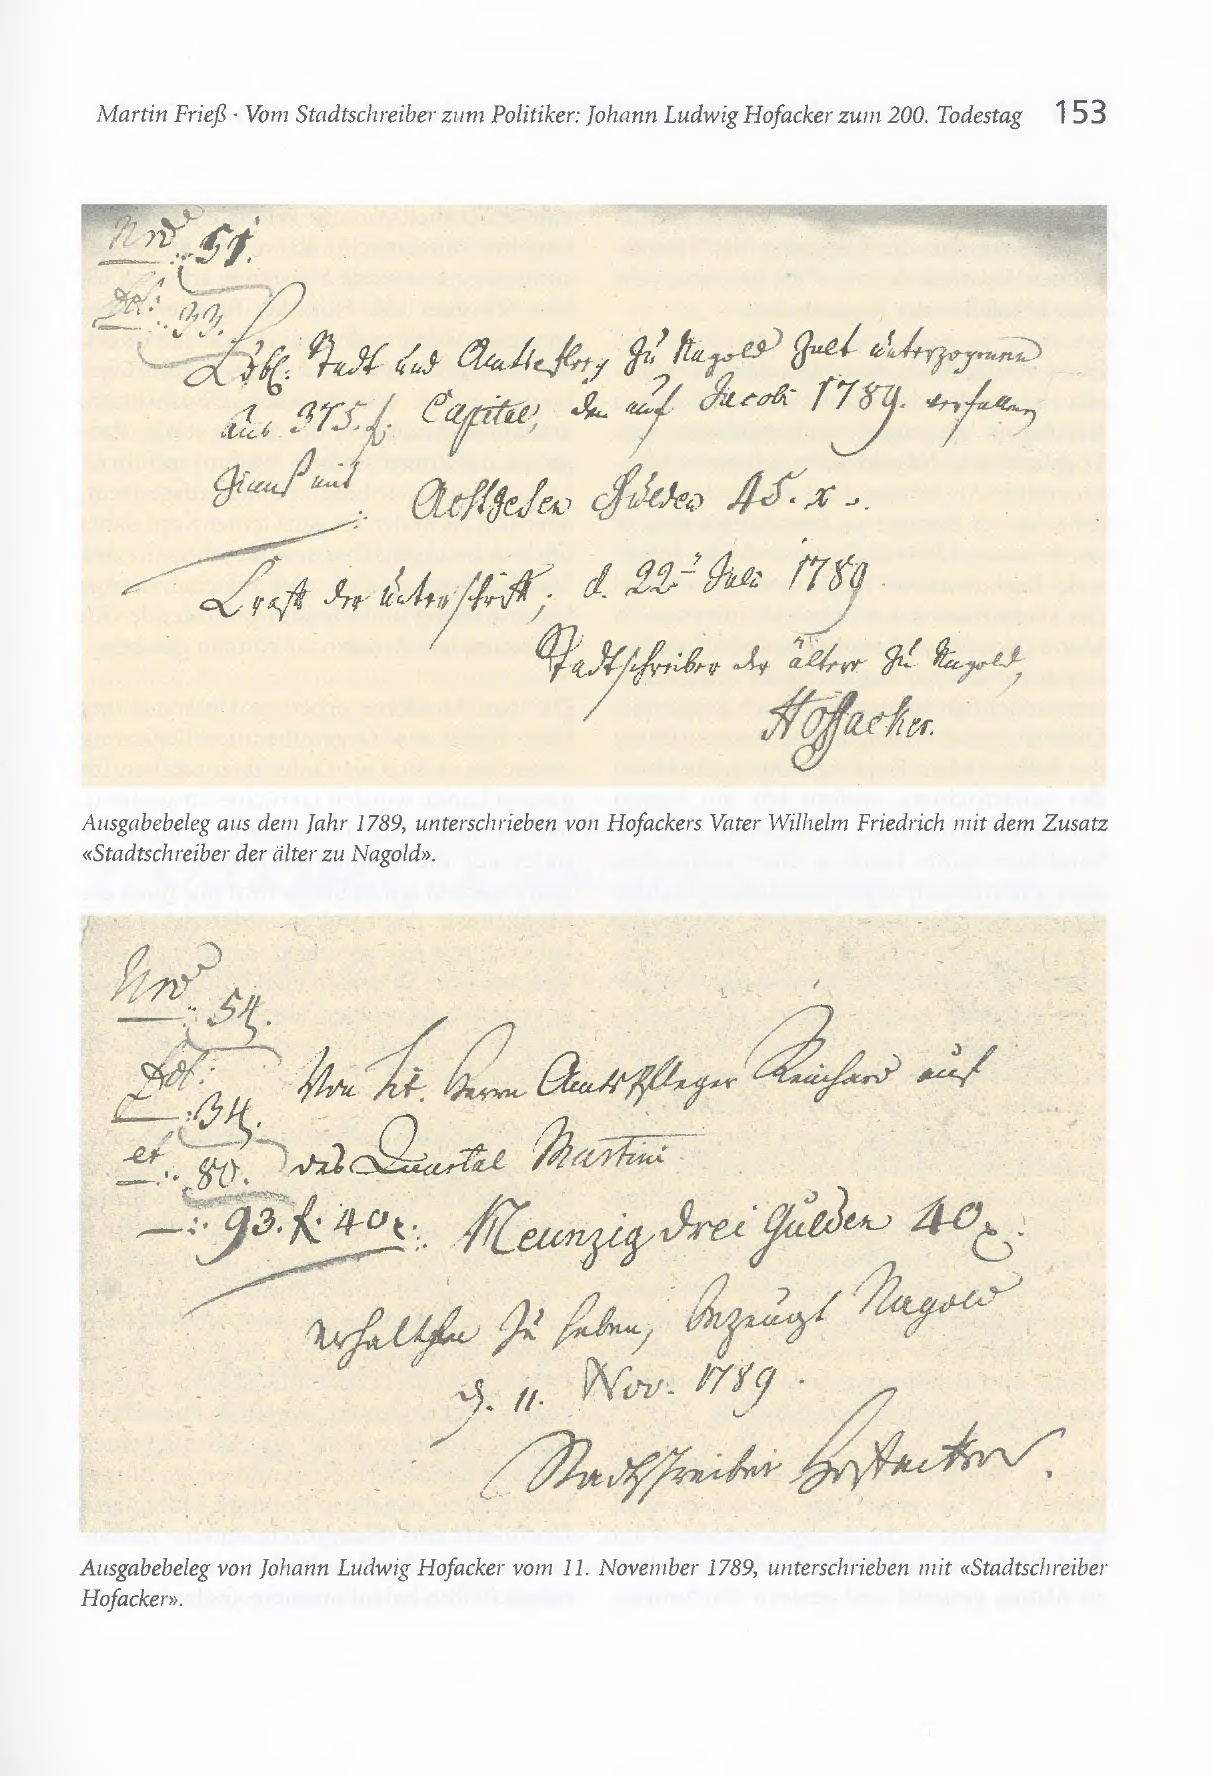 Martin Frieß · Vom Stadtschreiber zum Politiker: Johann Ludwig Hofacker zum 200. Todestag 153
Nro 51.
Fol: 33.
Löbl. Stadt und Amtspfleg zu Nagold zalt unterzogenen
aus 375. f. Capital, den auf Jacobi 1789. verfallen
Zinnß mit
Achtzehen Gulden 45. x.
Kraft der Unterschrift, d. 22. Juli 1789
Stadtschreiber der ältere zu Nagold,
Hofacker.
Ausgabebeleg aus dem Jahr 1789, unterschrieben von Hofackers Vater Wilhelm Friedrich mit dem Zusatz
«Stadtschreiber der älter zu Nagold».
Nro 54.
Fol: 34.
et 80.
Von tit. Herrn Amtspfleger Reinhard auf
das Quartal Martini
93. f. 40 x. Neunzig drei Gulden 40 x.
erhalthen zu haben, bezeugt Nagold
d. 11. Nov. 1789.
Stadtschreiber Hofacker.
Ausgabebeleg von Johann Ludwig Hofacker vom 11. November 1789, unterschrieben mit «Stadtschreiber
Hofacker».